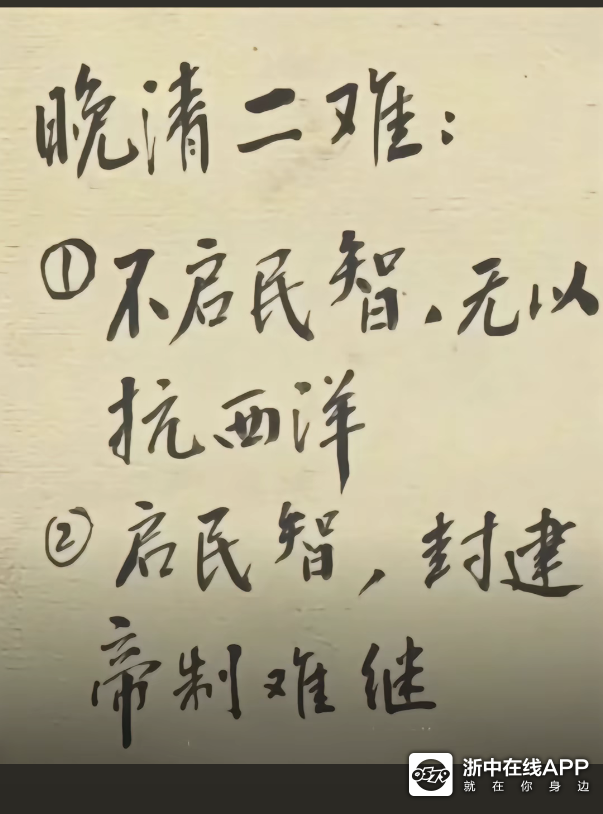 晚清二难：
①不启民智，无以
抗西洋
②启民智，封建
帝制难继
0579
浙中在线APP
就在你身边